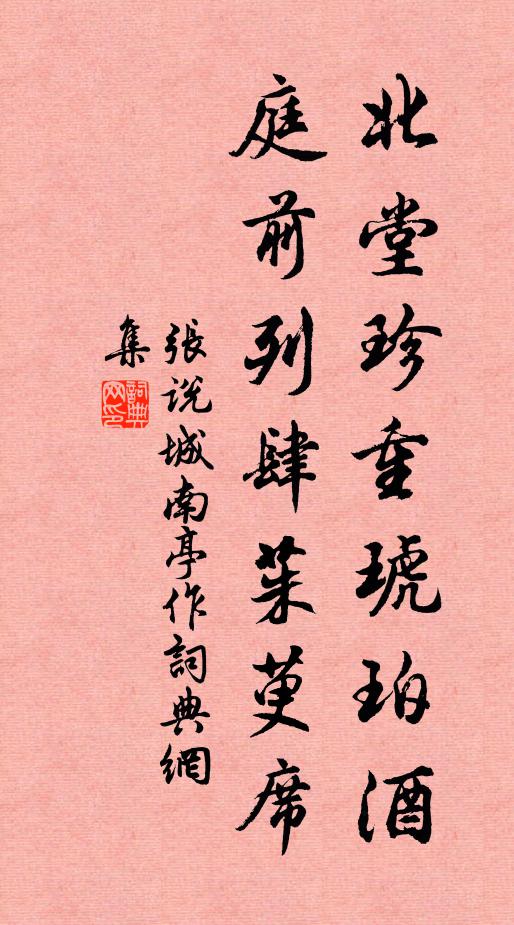 北堂珍重琥珀酒
庭前列肆茱萸席
張說城南亭作詞典網
集
詞典
网印